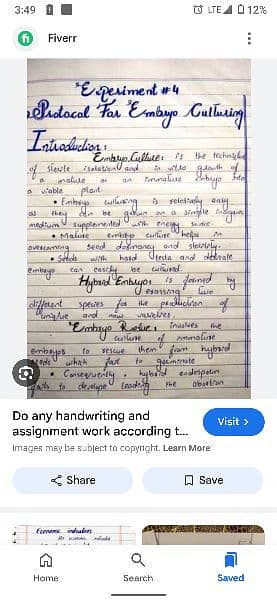 3:49
LTE 12%
Fiverr
"Experiment #4
Protocol For Embryo Culturing
Introduction:
Embryo Culture: is the technique
of sterile isolation and in vitro growth of
a mature or an immature embryo into
a viable plant.
• Embryo culturing is relatively easy
as they can be grown on a simple inorganic
medium supplemented with energy source.
• Mature embryo culture helps in
overcoming seed dormancy and sterility.
• Seeds with hard testa and delicate
embryo can easily be cultured.
Hybrid Embryo: is formed by
crossing two
different species for the production of
unique and new varieties.
"Embryo Rescue: involves the
culture of immature
embryos to rescue them from hybrid
seeds which fail to germinate
• Consequently, hybrid endosperm
fails to develope leading the abortion
Do any handwriting and
assignment work according t...
Visit >
Images may be subject to copyright. Learn More
Share
Save
Economic indicators
Home
Search
Saved